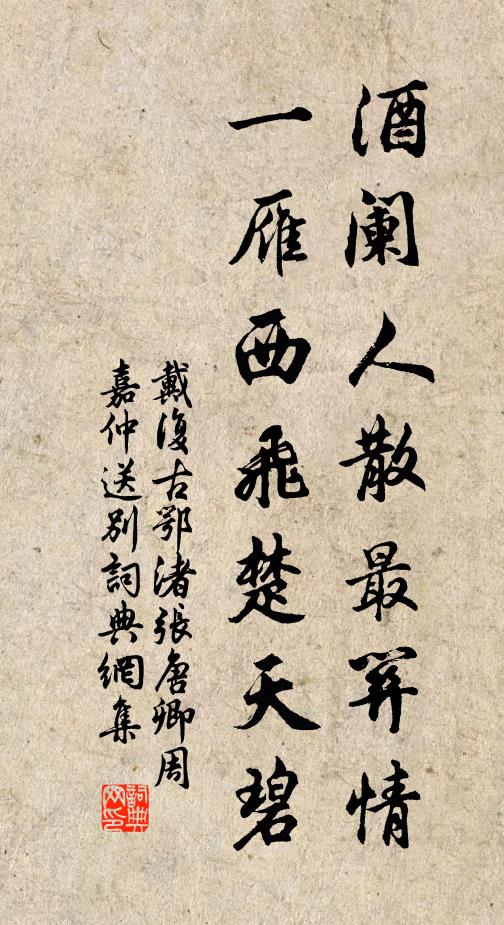 酒闌人散最關情
一雁西飛楚天碧
戴復古鄂渚張唐卿周
嘉仲送別詞典網集
詞典
网印